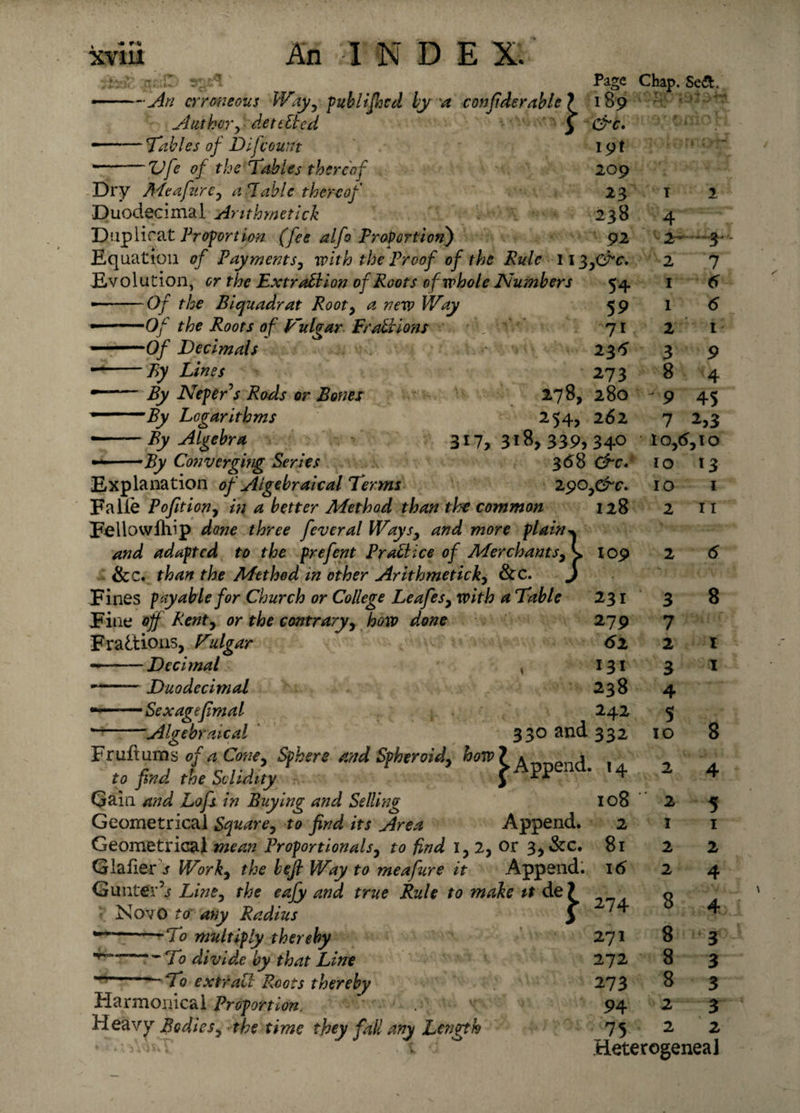 xviii An INDEX.
Page Chap. Sect.
———An erroneous Way, publiſhed by a conſiderable } 189
Author, detected } &c.
———Tables of Diſcount 191
———Uſe of the Tables thereof 209
Dry Meaſure, a Table thereof 23 1 2
Duodecimal Arithmetick 238 4
Duplicat Proportion (ſee alſo Proportion) 92 2 3
Equation of Payments, with the Proof of the Rule 113,&c. 2 7
Evolution, or the Extraction of Roots of whole Numbers 54 1 6
———Of the Biquadrat Root, a new Way 59 1 6
———Of the Roots of Vulgar Fractions 71 2 1
———Of Decimals 236 3 9
———By Lines 273 8 4
———By Neper's Rods or Bones 278, 280 9 45
———By Logarithms 254, 262 7 2,3
———By Algebra 317, 318, 339, 340 10,6,10
———By Converging Series 368 &c. 10 13
Explanation of Algebraical Terms 290,&c. 10 1
Falſe Poſition, in a better Method than the common 128 2 11
Fellowſhip done three ſeveral Ways, and more plain }
and adapted to the preſent Practice of Merchants, } 109 2 6
&c. than the Method in other Arithmetick, &c. }
Fines payable for Church or College Leaſes, with a Table 231 3 8
Fine off Rent, or the contrary, how done 279 7
Fractions, Vulgar 62 2 1
———Decimal 131 3 1
———Duodecimal 238 4
———Sexageſimal 242 5
———Algebraical 330 and 332 10 8
Fruſtums of a Cone, Sphere and Spheroid, how } Append. 14 2 4
to find the Solidity }
Gain and Loſs in Buying and Selling 108 2 5
Geometrical Square, to find its Area Append. 2 1 1
Geometrical mean Proportionals, to find 1, 2, or 3, &c. 81 2 2
Glaſier's Work, the beſt Way to meaſure it Append. 16 2 4
Gunter's Line, the eaſy and true Rule to make it de } 274 8 4
Novo to any Radius }
———To multiply thereby 271 8 3
———To divide by that Line 272 8 3
———To extract Roots thereby 273 8 3
Harmonical Proportion 94 2 3
Heavy Bodies, the time they fall any Length 75 2 2
Heterogeneal